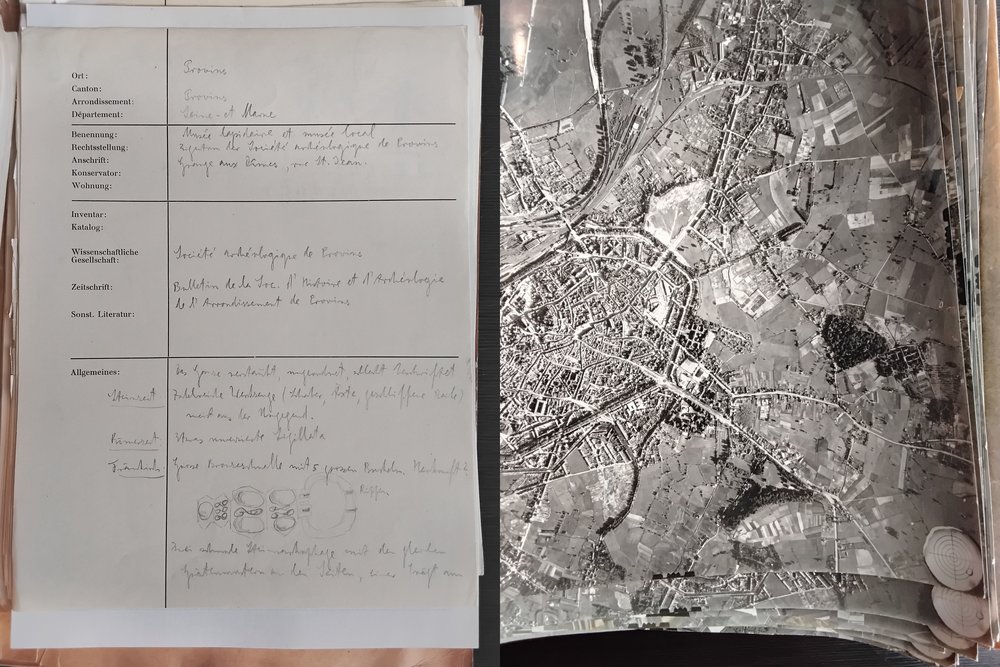 Ort: Provins
Canton:
Arrondissement: Provins
Département: Seine-et Marne
Benennung: Musée lapidaire et musée local
Rechtsstellung: Eigentum der Société archéologique de Provins
Anschrift: Grange aux Dîmes, rue St. Jean.
Konservator:
Wohnung:
Inventar:
Katalog:
Wissenschaftliche
Gesellschaft: Société archéologique de Provins
Zeitschrift: Bulletin de la Soc. d'Histoire et d'Archéologie
de l'Arrondissement de Provins
Sonst. Literatur:
Allgemeines: Das Ganze verstaubt, ungeordnet, schlecht
Steinzeit Zahlreiche Werkzeuge (Schaber, Äxte, geschliffene Beile)
meist aus der Umgegend.
Römerzeit Etwas unverzierte Sigillata
Fränkisch: Grosse Bronzeschnalle mit 5 grossen Buckeln, Herkunft?
Rippen
Zwei schmale mit den gleichen
an den Seiten, einer trägt am